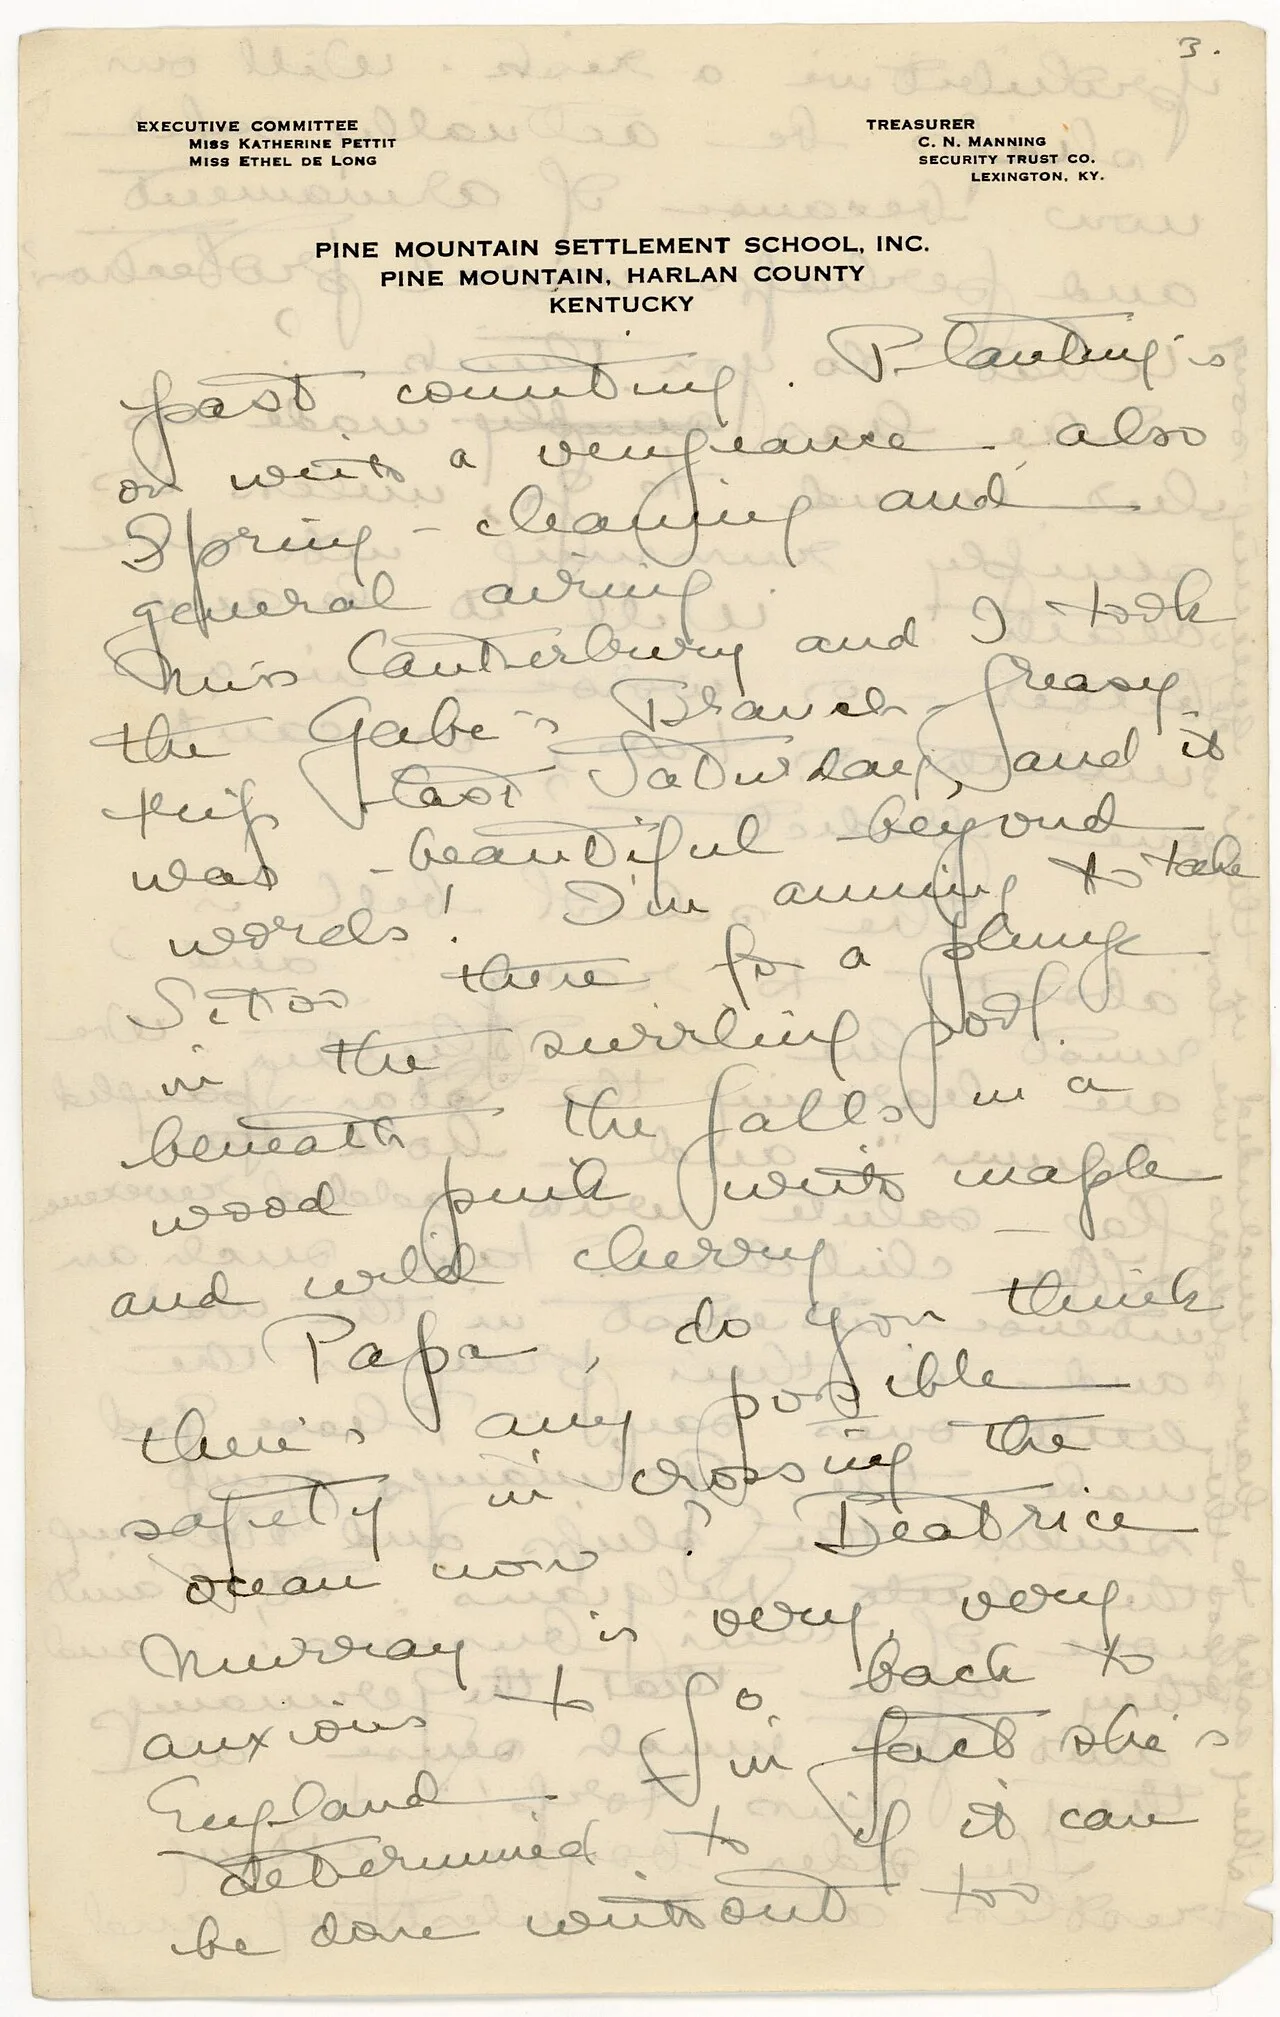 3.
EXECUTIVE COMMITTEE
MISS KATHERINE PETTIT
MISS ETHEL DE LONG
TREASURER
C. N. MANNING
SECURITY TRUST CO.
LEXINGTON, KY.
PINE MOUNTAIN SETTLEMENT SCHOOL, INC.
PINE MOUNTAIN, HARLAN COUNTY
KENTUCKY
past counting. Planting's
on with a vengeance also
Spring-cleaning and
general airing.
Miss Canterbury and I took
the Gabe's Branch-Greasy
trip last Saturday, and it
was beautiful beyond
words! I'm aiming to take
there for a plunge
in the swirling pool
beneath the falls in a
wood pink with maple
and wild cherry –
Papa, do you think
there's any possible
safety in crossing the
ocean now? Beatrice
Murray is very, very
anxious to go back to
England – in fact she's
determined to if it can
be done without too